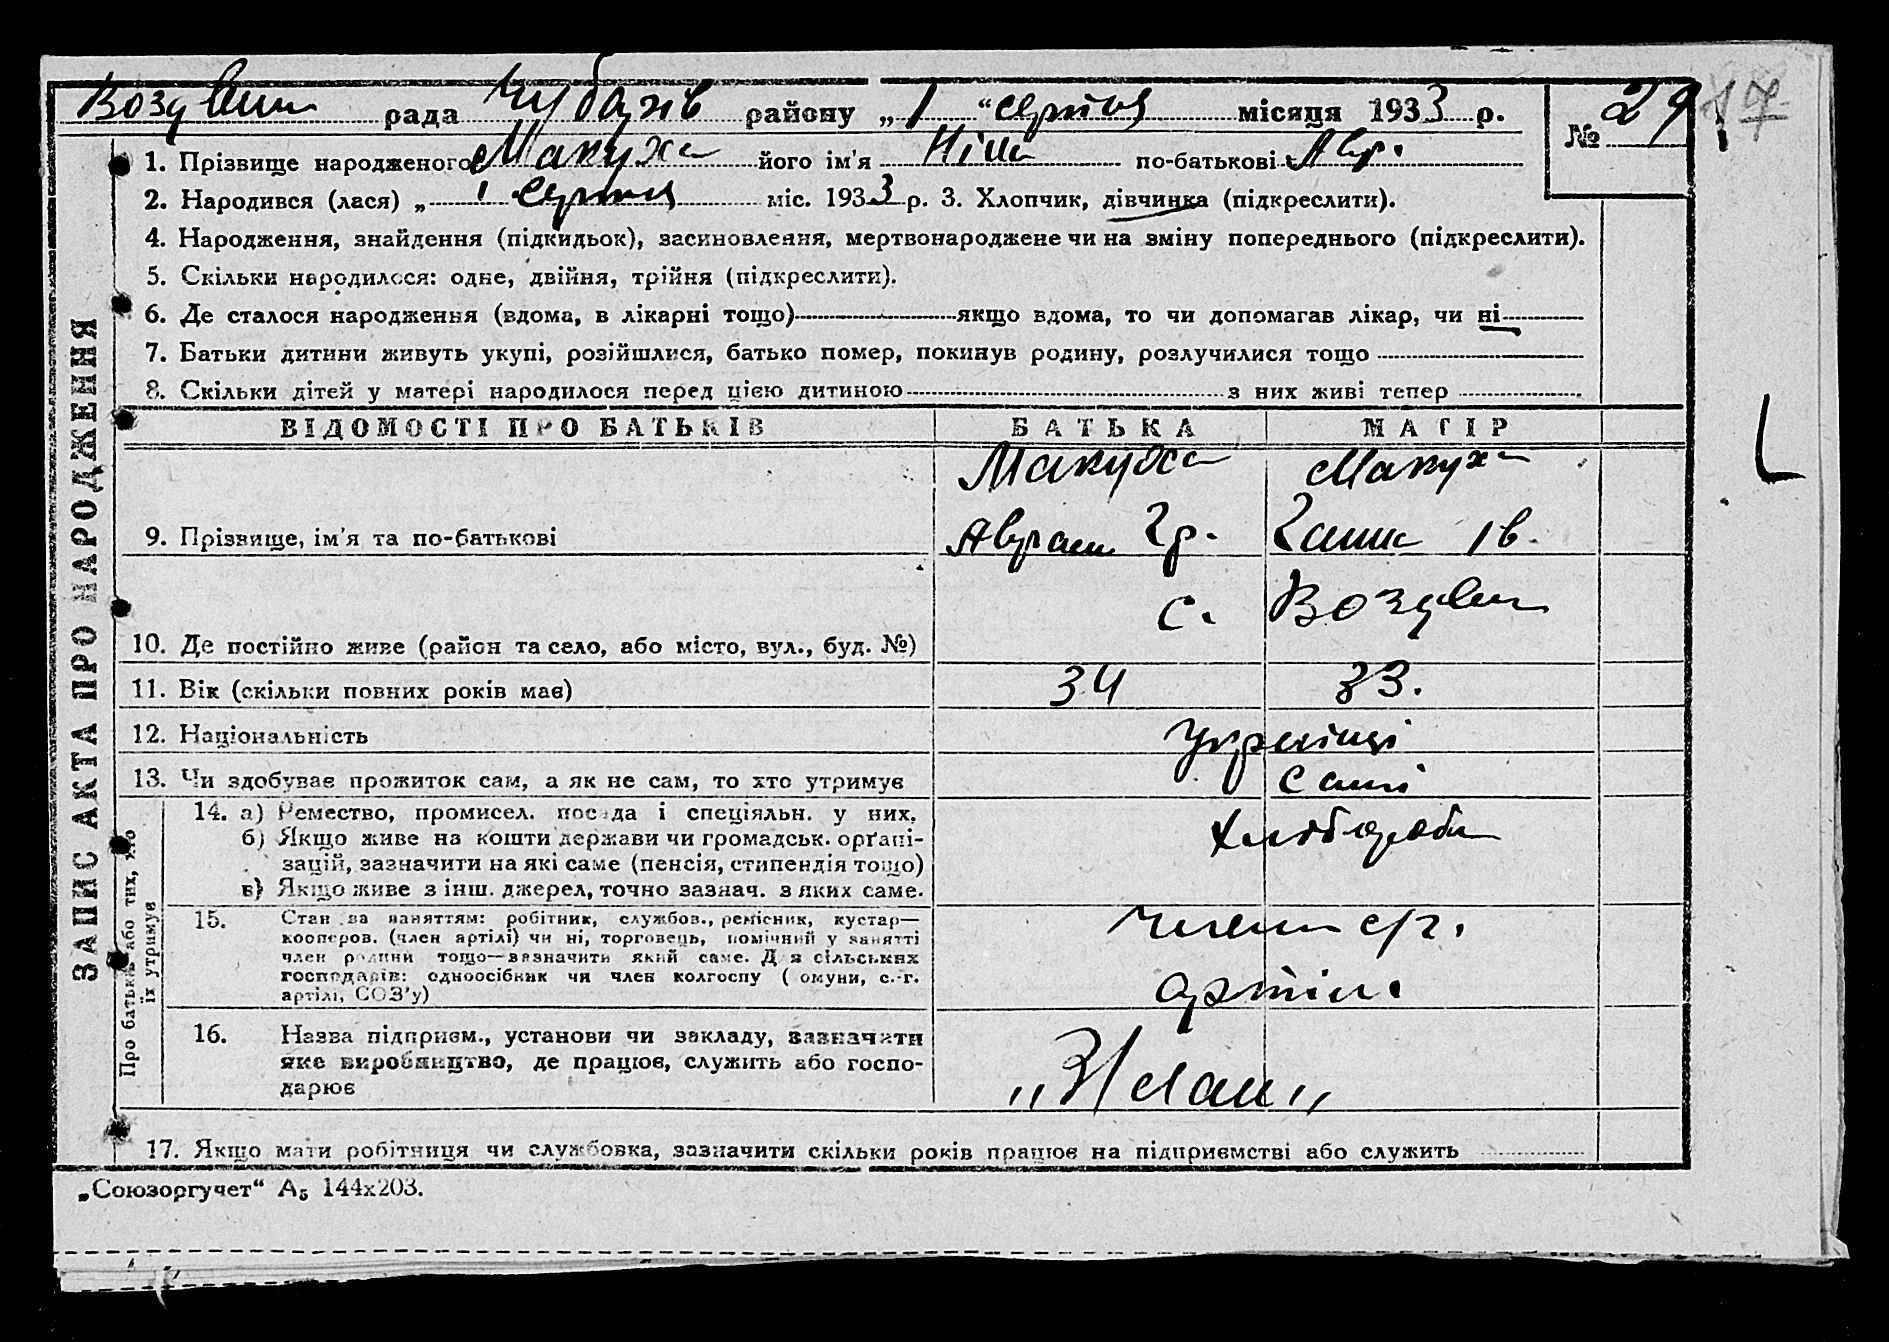 Воздвиж рада Чубахів району „ 1 “ серпня місяця 1933 р. № 29 17
1. Прізвище народженого Макуха його ім'я Ніна по-батькові Авр.
2. Народився (лася) „ 1 серпня міс. 1933 р. 3. Хлопчик, дівчинка (підкреслити).
4. Народження, знайдення (підкидьок), засиновлення, мертвонароджене чи на зміну попереднього (підкреслити).
5. Скільки народилося: одне, двійня, трійня (підкреслити).
6. Де сталося народження (вдома, в лікарні тощо) якщо вдома, то чи допомагав лікар, чи ні
7. Батьки дитини живуть укупі, розійшлися, батько помер, покинув родину, розлучилися тощо
8. Скільки дітей у матері народилося перед цією дитиною з них живі тепер
ЗАПИС АКТА ПРО НАРОДЖЕННЯ
ВІДОМОСТІ ПРО БАТЬКІВ БАТЬКА МАТІР
Макуха Макуха
9. Прізвище, ім'я та по-батькові Аврам Гр. Ганна Ів.
с. Воздвиж
10. Де постійно живе (район та село, або місто, вул., буд. №)
11. Вік (скільки повних років має) 34 33.
12. Національність Українці
13. Чи здобуває прожиток сам, а як не сам, то хто утримує Самі
Про батька або тих, хто їх утримує
14. а) Ремество, промисел. посада і спеціяльн. у них. Хлібороби
б) Якщо живе на кошти держави чи громадськ. орґані-
зацій, зазначити на які саме (пенсія, стипендія тощо)
в) Якщо живе з інш. джерел, точно зазнач. з яких саме.
15. Стан за заняттям: робітник, службов., ремісник, кустар— член ср.
кооперов. (член артілі) чи ні, торговець, помічний у занятті
член родини тощо—зазначити який саме. Для сільських
господарів: одноосібник чи член колгоспу (комуни, с.-г. артіли
артілі, СОЗ'у)
16. Назва підприєм., установи чи закладу, зазначати
яке виробництво, де працює, служить або госпо-
дарює
17. Якщо мати робітниця чи службовка, зазначити скільки років працює на підприємстві або служить
„Союзоргучет“ А₅ 144х203.